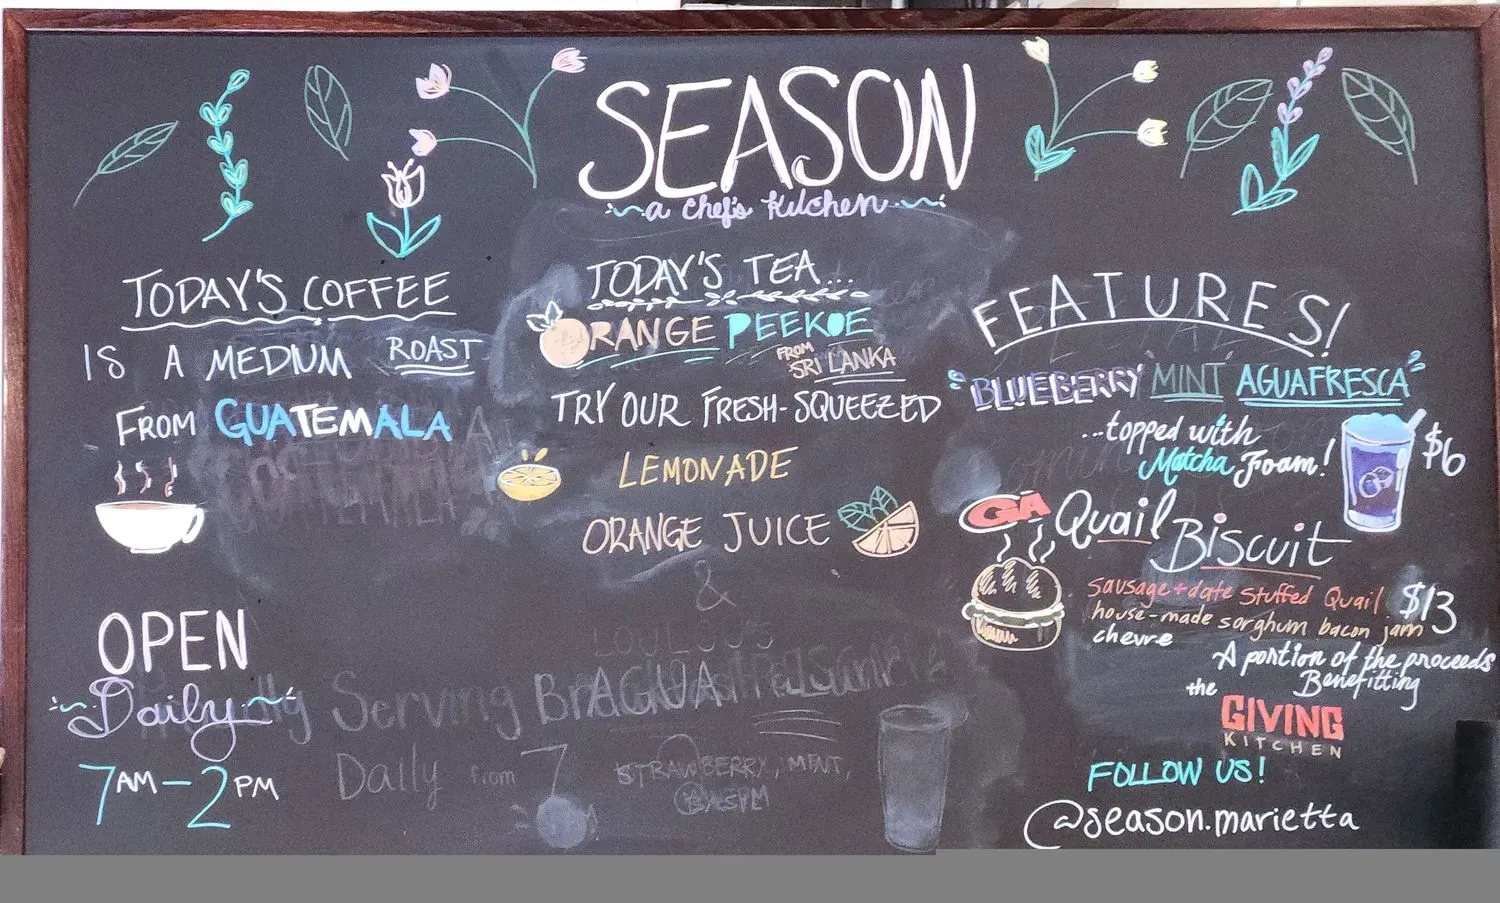 SEASON
a chef's kitchen
TODAY'S COFFEE
IS A MEDIUM ROAST
FROM GUATEMALA
OPEN
Daily
7AM-2PM
TODAY'S TEA...
ORANGE PEEKOE
FROM
SRI LANKA
TRY OUR FRESH-SQUEEZED
LEMONADE
ORANGE JUICE
&
AGUA
Serving
Daily from 7
STRAWBERRY, MINT,
FEATURES!
BLUEBERRY MINT AGUAFRESCA
...topped with
Matcha Foam!
$6
GA Quail
Biscuit
Sausage + date Stuffed Quail
house-made sorghum bacon jam
chevre
$13
A portion of the proceeds
Benefitting
the GIVING
KITCHEN
FOLLOW US!
@season.marietta